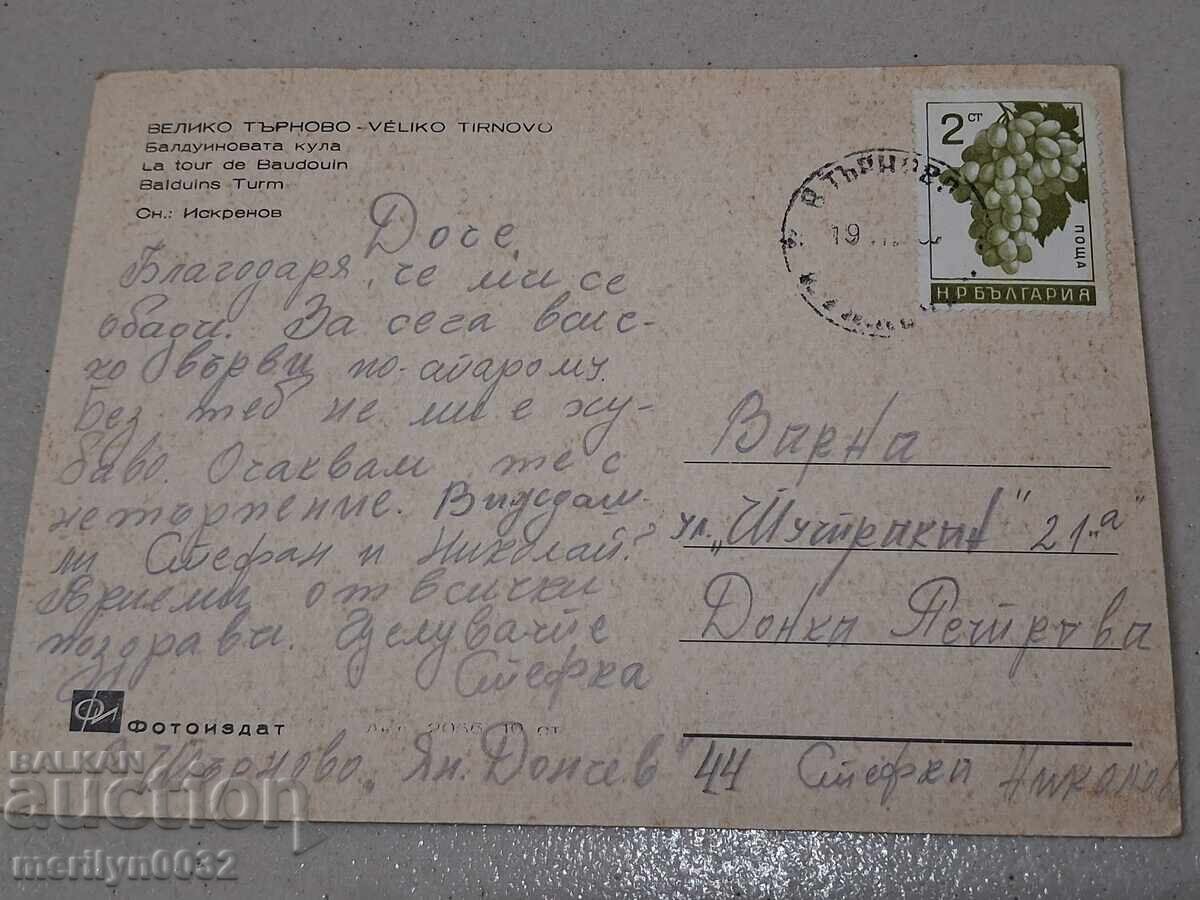 ВЕЛИКО ТЪРНОВО - VÉLIKO TIRNOVO
Балдуиновата кула
La tour de Baudouin
Balduins Turm
Сн.: Искренов
2 СТ
ПОЩА
НР БЪЛГАРИЯ
В ТЪРНОВО
19
Доче,
Благодаря, че ми се
обади. За сега всич-
ко върви по-старому.
Без теб не ми е ху-
баво. Очаквам те с
нетърпение. Виждаш
ли Стефан и Николай?
Приеми от всички
поздрави. Целувайте
Стефка
Варна
ул. „Шутракан" 21 „а"
Донка Петрова
ФИ
Фотоиздат
2056 10 ст.
Търново „Ян. Дончев" 44 Стефка Николов
BALKAN
auction
merilyn0032